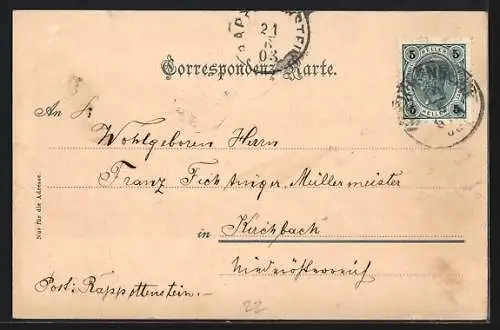 21
03
Correspondenz-Karte.
5 HELLER 5
An Sr
Wohlgeboren Herrn
Franz Fichtinger, Müllermeister
in Kirchbach
Niederösterreich
Post: Rappottenstein.
Nur für die Adresse.
22